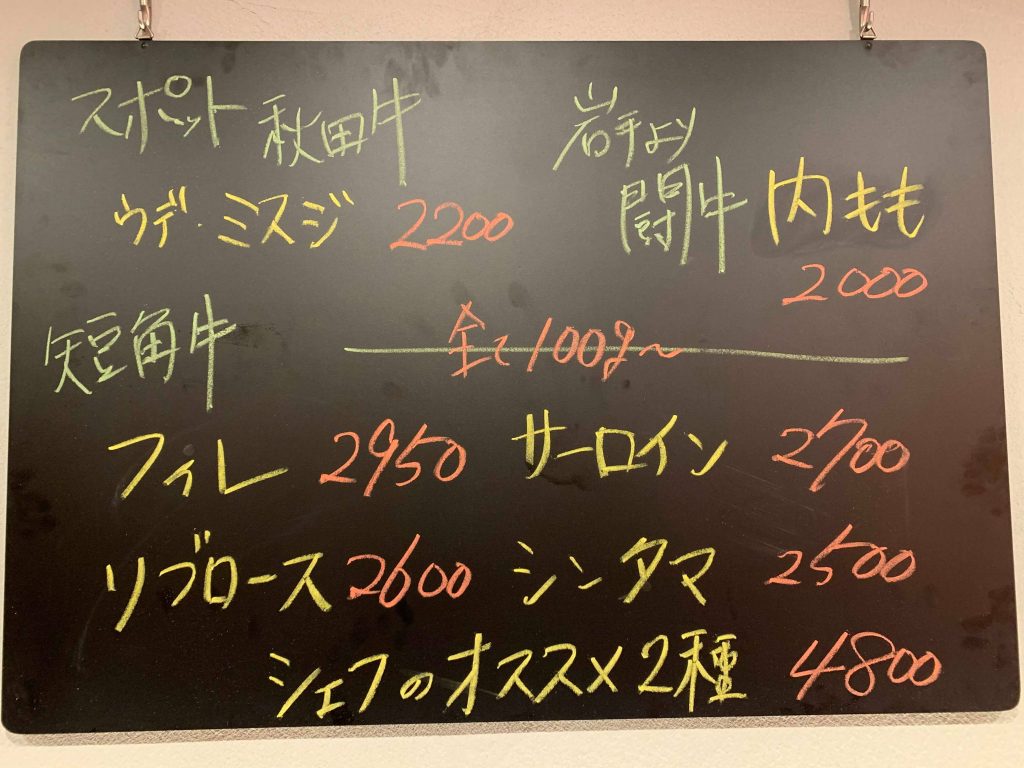 スポット 秋田牛
ウデ・ミスジ 2200
岩手より
闘牛 内もも
2000
短角牛 全て100g〜
フィレ 2950 サーロイン 2700
リブロース 2600 シンタマ 2500
シェフのオススメ2種 4800